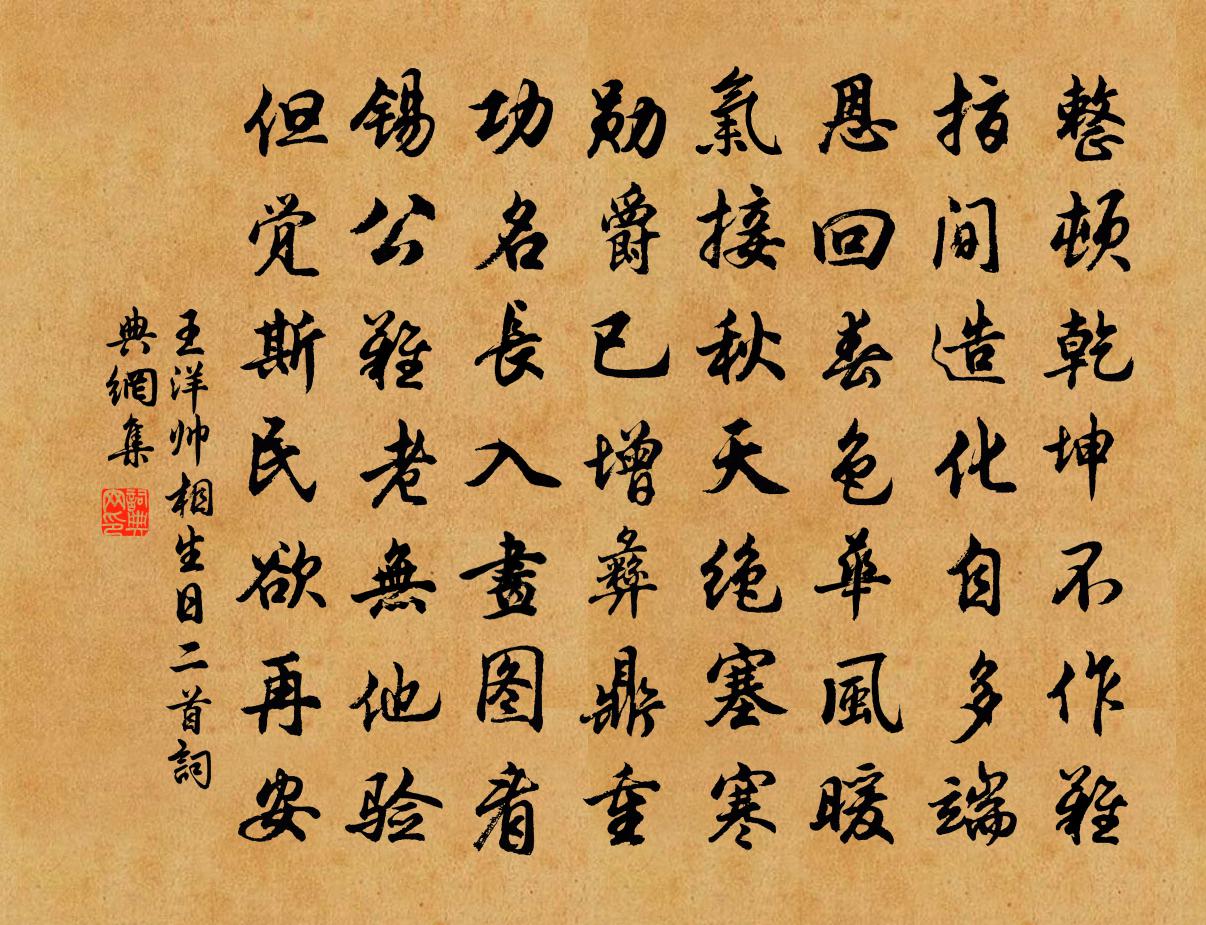 整頓乾坤不作難
指间造化自多端
恩回春色華風暖
氣接秋天绝塞寒
勋爵已增彝鼎重
功名長入畫图看
锡公難老無他验
但觉斯民欲再安
王洋帅相生日二首詞
典網集
詞典
网印